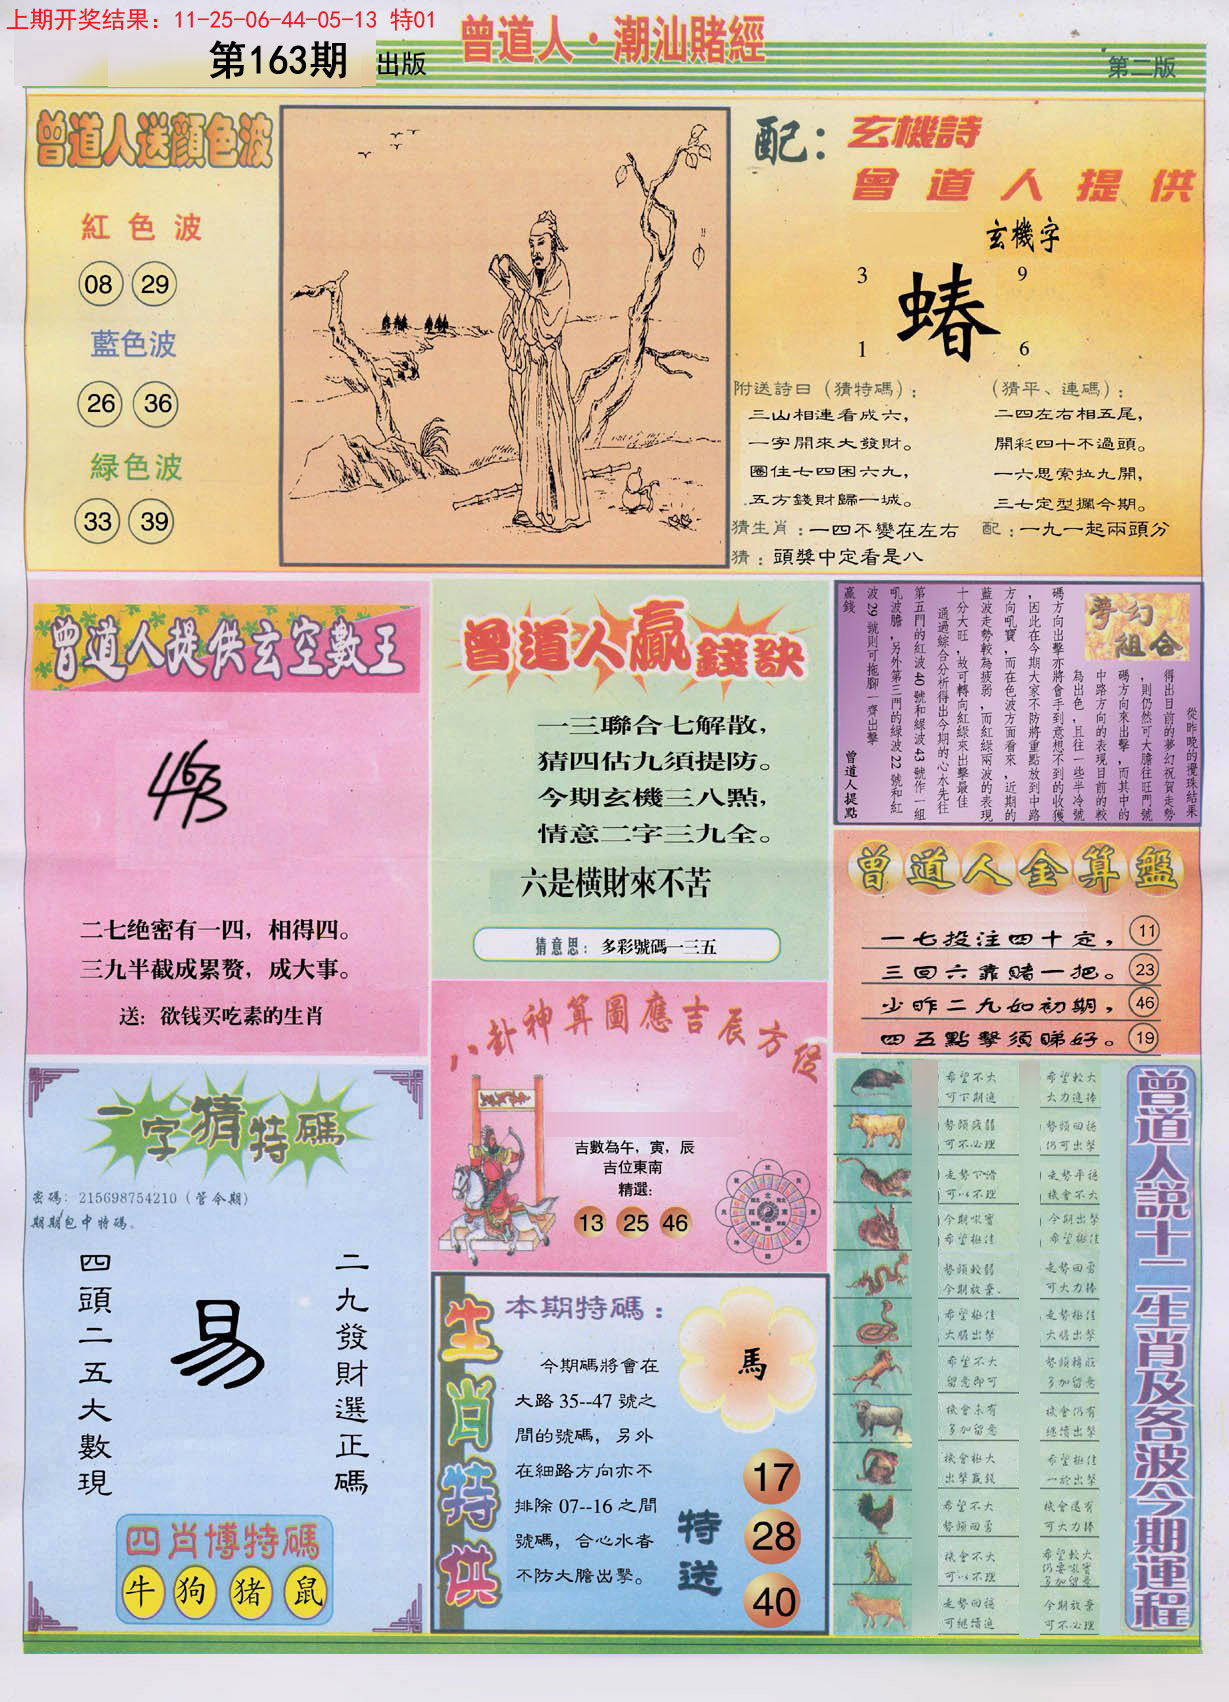 上期开奖结果：11-25-06-44-05-13 特01
曾道人·潮汕賭經
第163期
出版
第二版
曾道人送顏色波
紅色波
08 29
藍色波
26 36
緑色波
33 39
配：
玄機詩
曾道人提供
玄機字
3 9
蝽
1 6
附送詩曰（猜特碼）：
三山相連看成六，
一字開來大發財。
圈住七四困六九，
五方錢財歸一城。
（猜平、連碼）：
二四左右相五尾，
開彩四十不過頭。
一六思索拉九開，
三七定型擱今期。
猜生肖：一四不變在左右
配：一九一起兩頭分
猜：頭獎中定看是八
曾道人提供玄空數王
463
二七绝密有一四，相得四。
三九半截成累赘，成大事。
送：欲钱买吃素的生肖
曾道人贏錢訣
一三聯合七解散，
猜四估九須提防。
今期玄機三八點，
情意二字三九全。
六是橫財來不苦
猜意思：多彩號碼一三五
夢幻組合
從昨晚的攪珠結果
得出目前的夢幻祝賀走勢
，則仍然可大膽往旺門號
碼方向來出擊，而其中的
中路方向的表現目前的較
為出色，且往一些半冷號
碼方向出擊亦將會手到意想不到的收獲
，因此在今期大家不防將重點放到中路
方向吼寶，而在色波方面看來，近期的
藍波走勢較為疲弱，而紅綠兩波的表現
十分大旺，故可轉向紅綠來出擊最佳
通過綜合分析得出今期的心水先往
第五門的紅波40號和綠波43號作一組
吼波膽，另外第三門的綠波22號和紅
波29號則可拖腳一齊出擊
贏錢
曾道人提點
曾道人金算盤
一七投注四十定， 11
三回六靠賭一把。 23
少昨二九如初期， 46
四五點擊須睇好。 19
八卦神算圖應吉辰方位
吉數為午，寅，辰
吉位東南
精選:
13 25 46
一字猜特碼
密碼：215698754210（管今期）
期期包中特碼。
四頭二五大數現
易
二九發財選正碼
四肖博特碼
牛 狗 猪 鼠
生肖特供
本期特碼：
馬
今期碼將會在
大路35--47號之
間的號碼，另外
在細路方向亦不
排除07--16之間
號碼，合心水者
不防大膽出擊。
特送
17
28
40
曾道人説十二生肖及各波今期運程
希望不大
可下期進
希望較大
大力進捧
勢頭疲弱
可不必理
勢頭回穩
仍可出擊
走勢下滑
可以不理
走勢平穩
機會不大
今期吼寶
希望極佳
今期出擊
希望極佳
勢頭較弱
今期放棄.
走勢回勇
可大力捧
希望極佳
大膽出擊
走勢極佳
大膽出擊
希望不大
留意即可
勢頭轉旺
多加留意
機會未有
多加留意
機會仍有
繼續出擊
機會極大
出擊贏錢
希望極佳
一於出擊
希望不大
勢頭回勇
機會還有
可大力捧
機會不大
可以不理
希望較大
仍要吼寶
多加留意
走勢回穩
可繼續進
今期放棄
可不必理